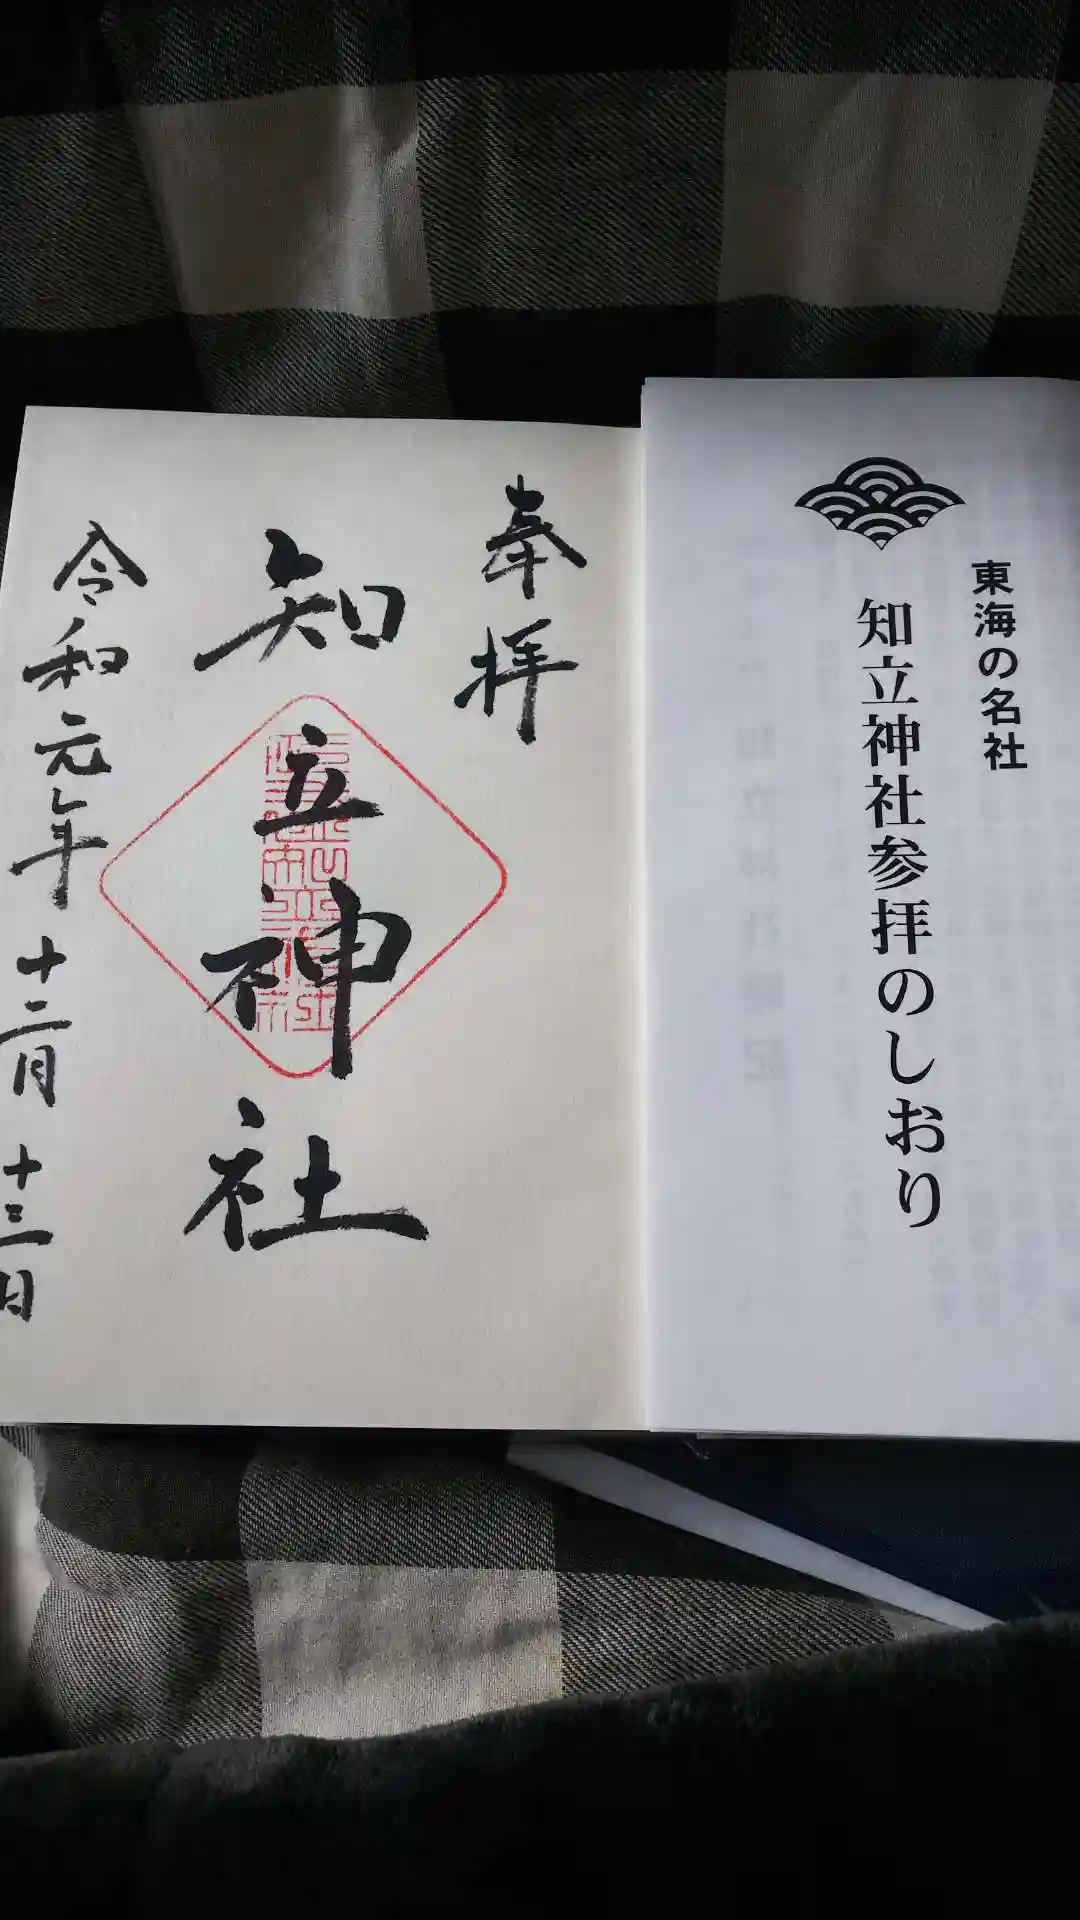 東海の名社
知立神社参拝のしおり
奉拝
知立神社
令和元年十二月十三日